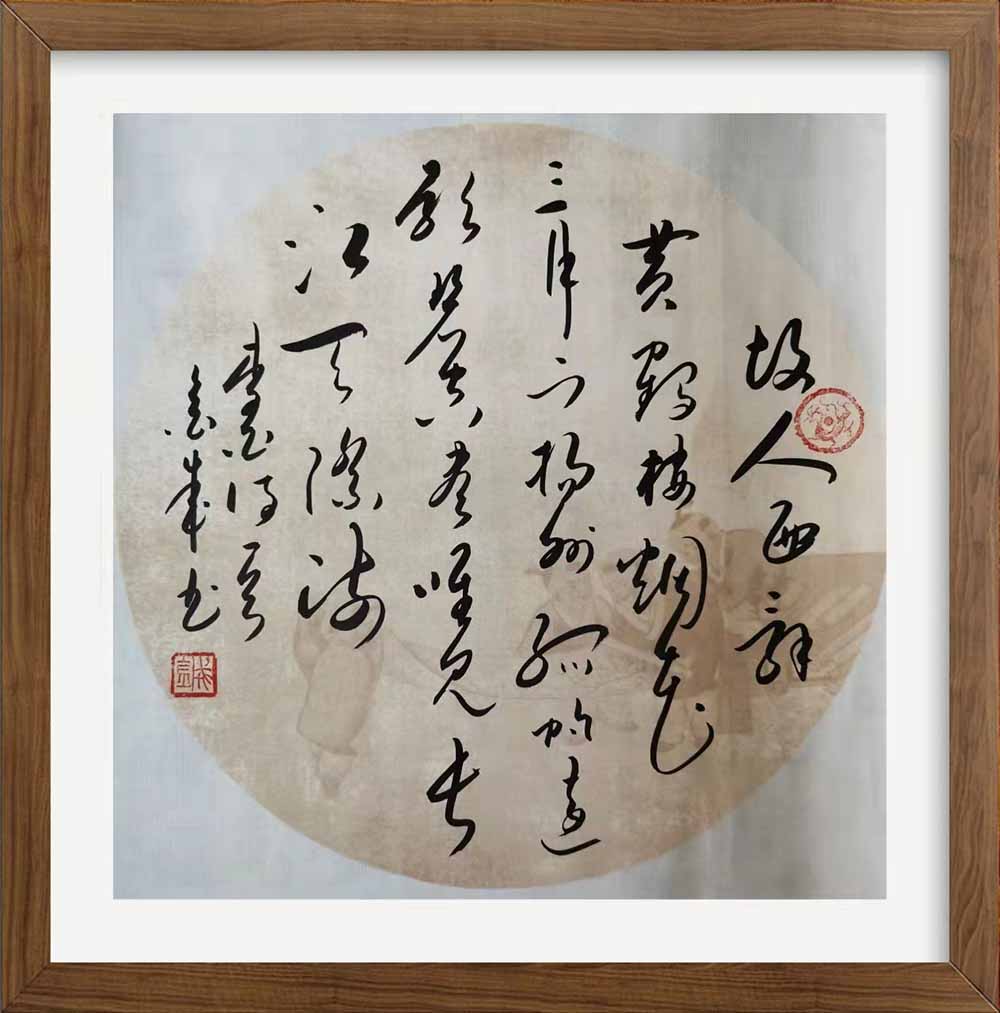 故人西辞
黄鹤楼烟花
三月下扬州孤帆远
影碧空尽唯见长
江天际流
李白诗
书